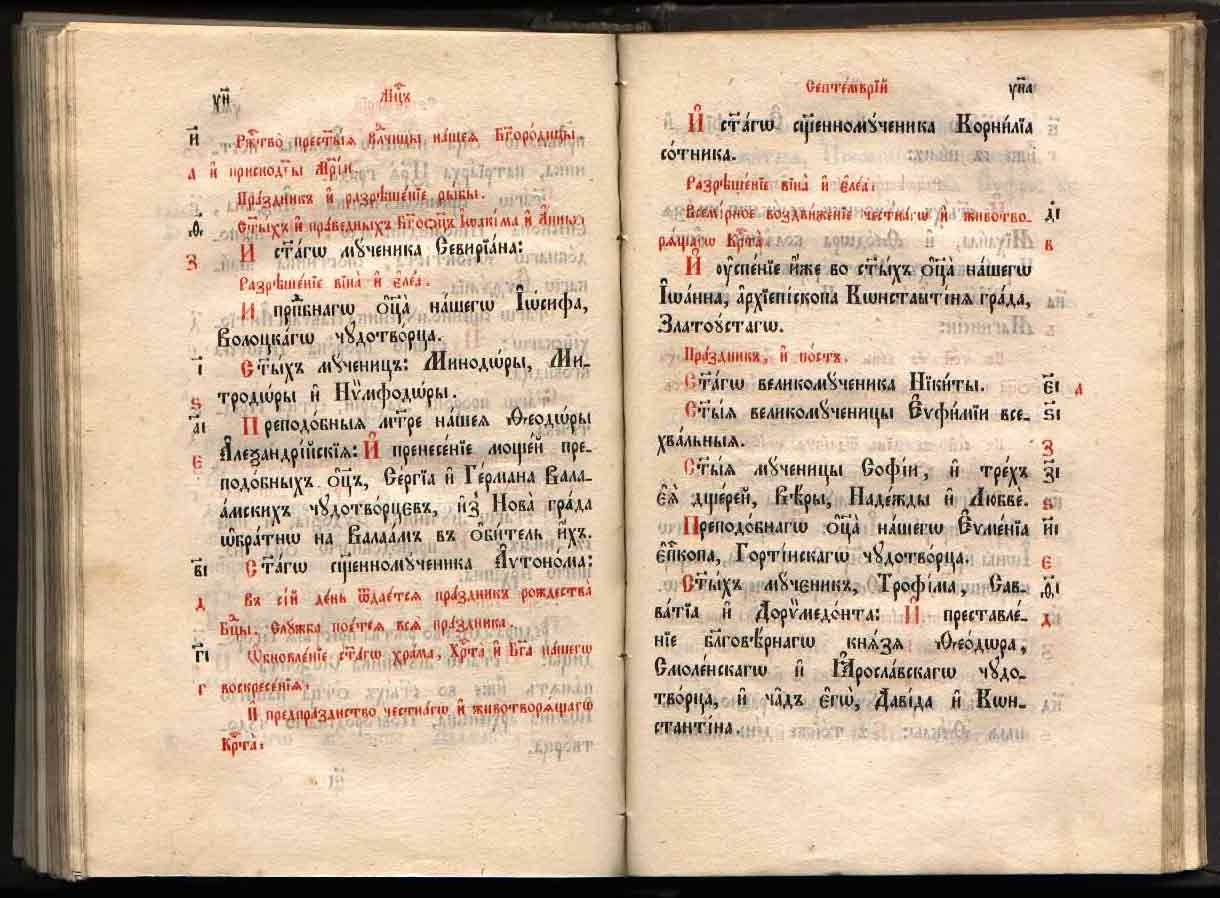 у҃н
Мⷭ҇цъ
и҃ Рⷤтво̀ прест҃ы́ѧ влⷣчцы на́шеѧ Бг҃оро́дицы
а и҆ присноⷣвы Мр҃і́и
Пра́здникъ и҆ разрѣше́нїе ры́бы.
ѳ҃ Ст҃ы́хъ и҆ пра́ведныхъ Бг҃оѻц҃ъ І҆ѡакі́ма и҆ А҆́нны
з И҆ ст҃а́гѡ мꙋ́ченика Севирїа́на:
Разрѣше́нїе вїна̀ и҆ є҆ле́а.
И҆ прⷣпбнагѡ ѻ҆ц҃а̀ на́шегѡ І҆ѡ́сифа,
Волоцка́гѡ чꙋдотво́рца.
і҃ Ст҃ы́хъ мꙋ́ченицъ: Минодѡ́ры, Ми-
ѕ тродѡ́ры и҆ Нѷмфодѡ́ры.
а҃і Преподо́бныѧ мт҃ре на́шеѧ Ѳеодѡ́ры
є А҆леѯандрі́йскїѧ: И҆ пренесе́нїе моще́й пре-
подо́бныхъ ѻ҆ц҃ъ, Се́ргїа и҆ Ге́рмана Вала-
а́мскихъ чꙋдотво́рцєвъ, и҆з̾ Нова̀ гра́да
ѡ҆бра́тнѡ на Валаа́мъ въ ѻ҆би́тель и҆́хъ.
в҃і Ст҃а́гѡ сщ҃енномꙋ́ченика А҆ѵтоно́ма:
д Въ сі́й де́нь ѿдае́тсѧ пра́здникъ рождества̀
Бц҃ы, слꙋ́жба пое́тсѧ всѧ̀ пра́здника.
г҃і Ѡ҆бновле́нїе ст҃а́гѡ хра́ма, Хрⷭ҇та̀ и҆ Бг҃а на́шегѡ
г воскресе́нїѧ:
И҆ предпра́зднство честна́гѡ и҆ животворѧ́щагѡ
Крⷭ҇та̀:
Септе́мврїй
у҃на
И҆ ст҃а́гѡ сщ҃енномꙋ́ченика Корни́лїа
со́тника.
Разрѣше́нїе вїна̀ и҆ є҆ле́а:
Всемі́рное воздви́женїе честна́гѡ и҆ животво- д҃і
рѧ́щагѡ Крⷭ҇та̀ в
И҆ оу҆спе́нїе и҆́же во ст҃ы́хъ ѻ҆ц҃а̀ на́шегѡ
І҆ѡа́нна, а҆рхїепі́скопа Кѡнстанті́нѧ гра́да,
Златоꙋ́стагѡ.
Пра́здникъ, и҆ по́стъ.
Ст҃а́гѡ великомꙋ́ченика Ники́ты. є҃і а
Ст҃ы́ѧ великомꙋ́ченицы Є҆ѵфи́мїи все- ѕ҃і
хва́льныѧ. з
Ст҃ы́ѧ мꙋ́ченицы Софі́и, и҆ тре́хъ з҃і
є҆ѧ̀ дще́рей, Вѣ́ры, Наде́жды и҆ Любве. ѕ
Преподо́бнагѡ ѻ҆ц҃а̀ на́шегѡ Є҆ѵме́нїа и҃і
є҆пⷭ҇копа, Горті́нскагѡ чꙋдотво́рца. є
Ст҃ы́хъ мꙋ́чєникъ, Трофі́ма, Сав- ѳ҃і
ва́тїа и҆ Дорѷмедо́нта: И҆ преставле́- д
нїе блг҃овѣ́рнагѡ кнѧ́зѧ Ѳео́дѡра,
Смоле́нскагѡ и҆ Ꙗ҆росла́вскагѡ чꙋдо-
тво́рца, и҆ ча̑дъ є҆гѡ̀, Даві́да и҆ Кѡн-
станті́на.